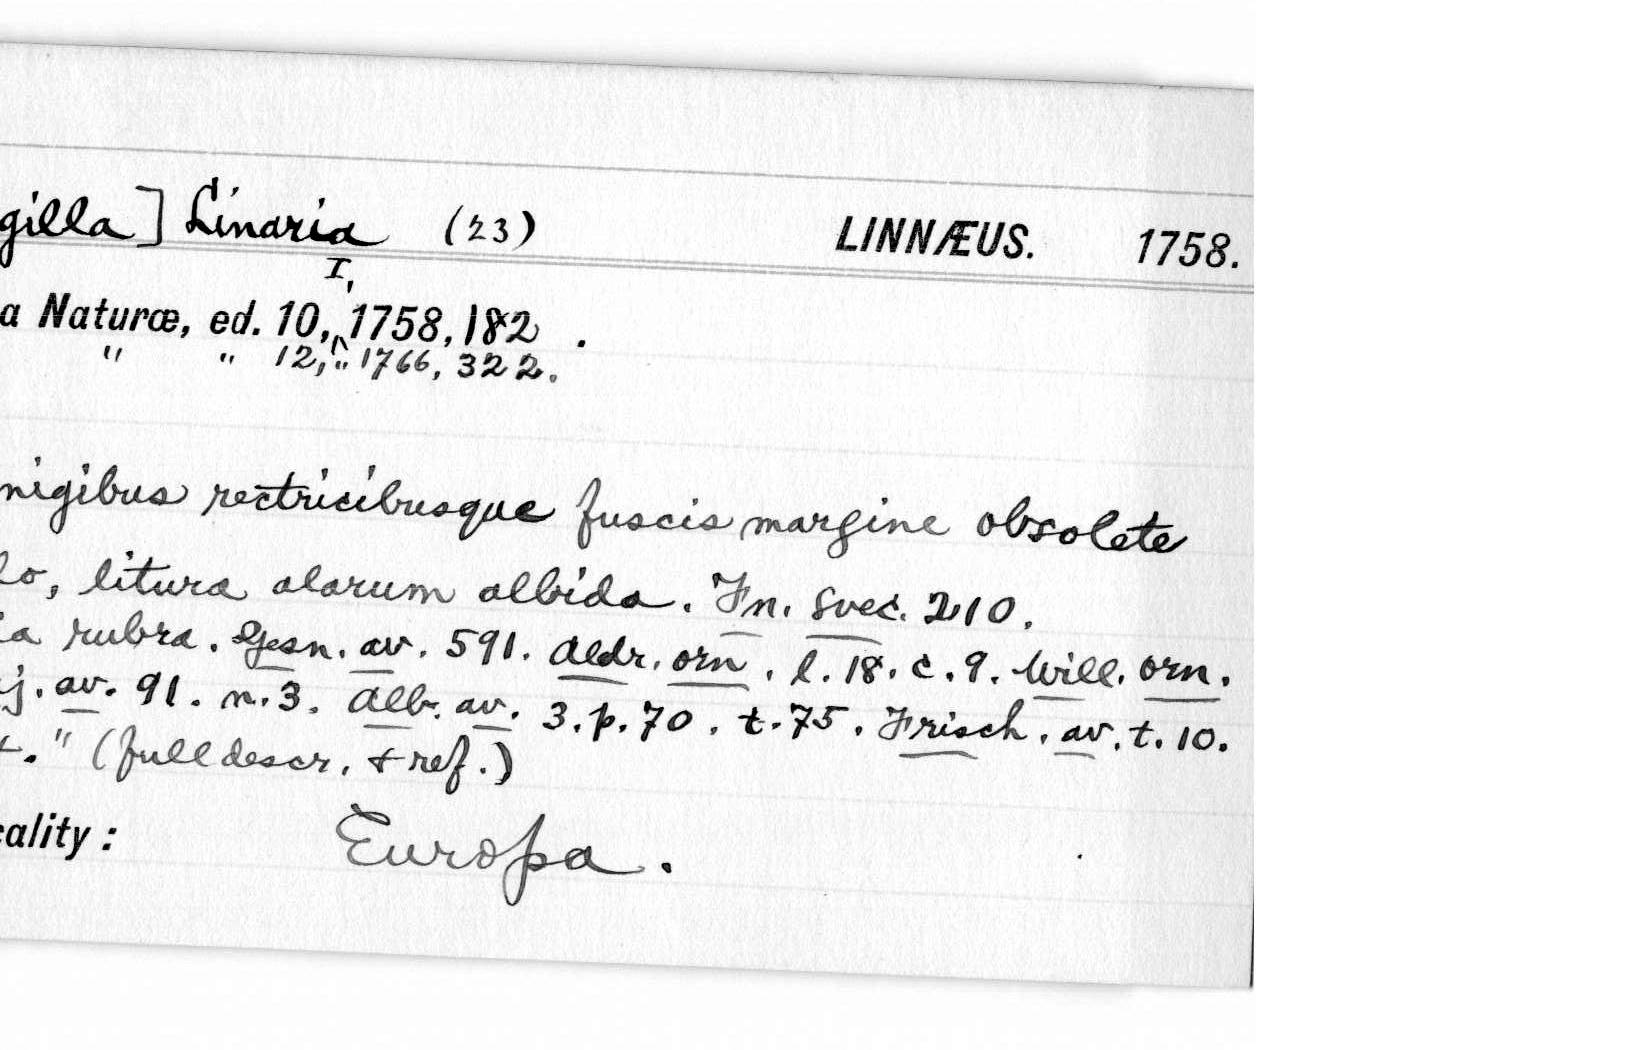 gilla] Linaria (23) LINNÆUS. 1758.
I,
a Naturæ, ed. 10, 1758, 182 .
" " 12, " 1766, 322.
nigibus rectricibusque fuscis margine obsolete
lo, litura alarum albida. Fn. Svec. 210.
ia rubra. Gesn. av. 591. Aldr. orn. l. 18. c. 9. Will. orn.
j. av. 91. n. 3. Alb. av. 3. p. 70. t. 75. Frisch. av. t. 10.
t." (full descr. + ref.)
cality: Europa.